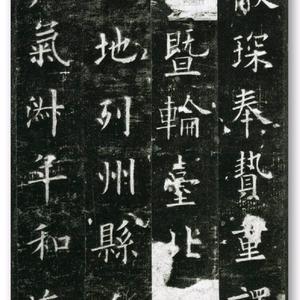 琛奉贄重譯
暨輪臺北
地列州縣
氣淑年和